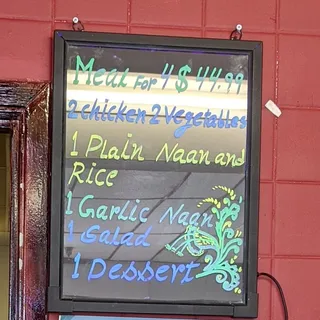 Meal For 4 $ 44.99
2 chicken 2 vegetables
1 Plain Naan and
Rice
1 Garlic Naan
1 Salad
1 Dessert